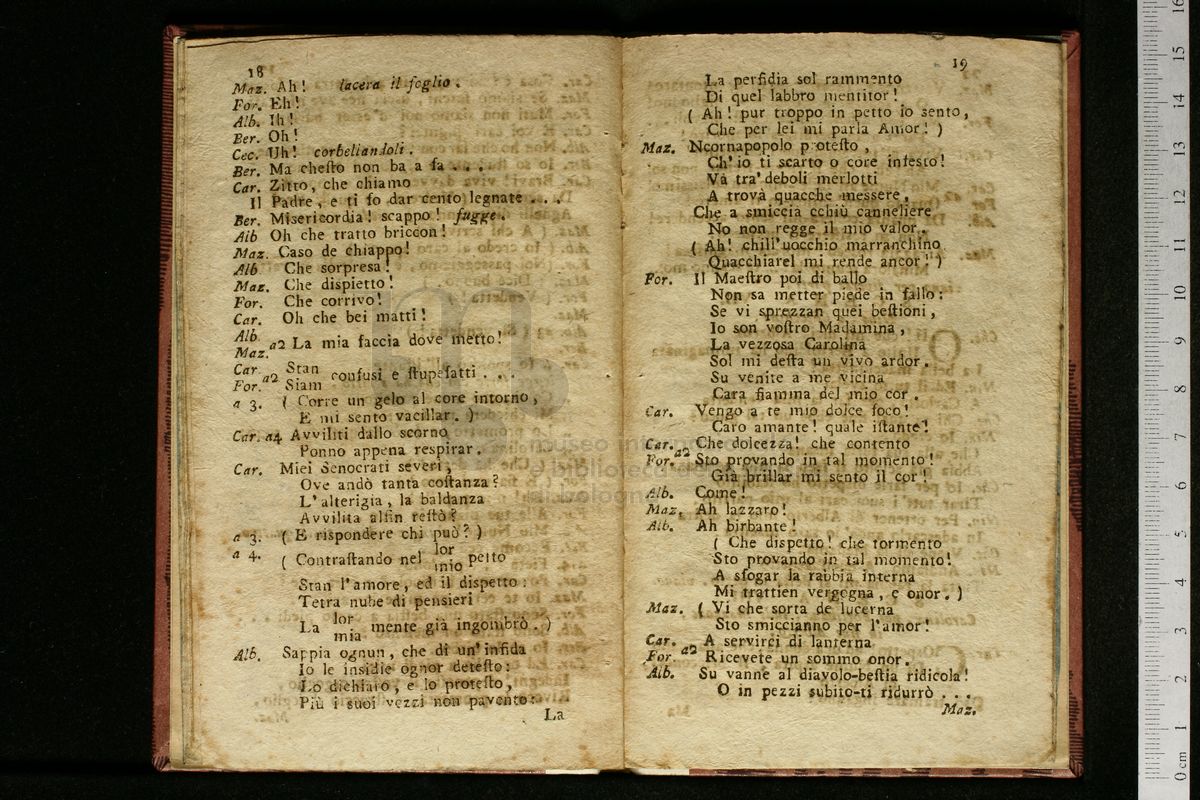 18
Maz. Ah! lacera il foglio.
For. Eh!
Alb. Ih!
Ber. Oh!
Cec. Uh! corbellandoli.
Ber. Ma chesto non ba a fa . . .
Car. Zitto, che chiamo
Il Padre, e ti fo dar cento legnate . . .
Ber. Misericordia! scappo! fugge.
Alb Oh che tratto briccon!
Maz. Caso de chiappo!
Alb Che sorpresa!
Maz. Che dispietto!
For. Che corrivo!
Car. Oh che bei matti!
Alb. Maz. a2 La mia faccia dove metto!
Car. For. a2 Stan Siam confusi e stupefatti . . .
a 3. ( Corre un gelo al core intorno,
E mi sento vacillar. )
Car. a4 Avviliti dallo scorno
Ponno appena respirar.
Car. Miei Senocrati severi,
Ove andò tanta costanza?
L'alterigia, la baldanza
Avvilita alfin restò?
a 3. ( E rispondere chi può? )
a 4. ( Contrastando nel lor mio petto
Stan l'amore, ed il dispetto:
Tetra nube di pensieri
La lor mia mente già ingombrò. )
Alb. Sappia ognun, che di un'infida
Io le insidie ognor detesto:
Lo dichiaro, e lo protesto,
Più i suoi vezzi non pavento:
La
19
La perfidia sol rammento
Di quel labbro mentitor!
( Ah! pur troppo in petto io sento,
Che per lei mi parla Amor! )
Maz. Ncornapopolo protesto,
Ch'io ti scarto o core infesto!
Va tra' deboli merlotti
A trovà quacche messere,
Che a smiccia cchiù canneliere
No non regge il mio valor.
( Ah! chill'uocchio marranchino
Quacchiarel mi rende ancor! )
For. Il Maestro poi di ballo
Non sa metter piede in fallo:
Se vi sprezzan quei bestioni,
Io son vostro Madamina,
La vezzosa Carolina
Sol mi desta un vivo ardor.
Su venite a me vicina
Cara fiamma del mio cor.
Car. Vengo a te mio dolce foco!
Caro amante! quale istante!
Car. For. a2 Che dolcezza! che contento
Sto provando in tal momento!
Già brillar mi sento il cor!
Alb. Come!
Maz. Ah lazzaro!
Alb. Ah birbante!
( Che dispetto! che tormento
Sto provando in tal momento!
A sfogar la rabbia interna
Mi trattien vergogna, e onor. )
Maz. ( Vi che sorta de lucerna
Sto smiccianno per l'amor!
Car. For a2 A servirci di lanterna
Ricevete un sommo onor.
Alb. Su vanne al diavolo-bestia ridicola!
O in pezzi subito-ti ridurrò . . .
Maz.